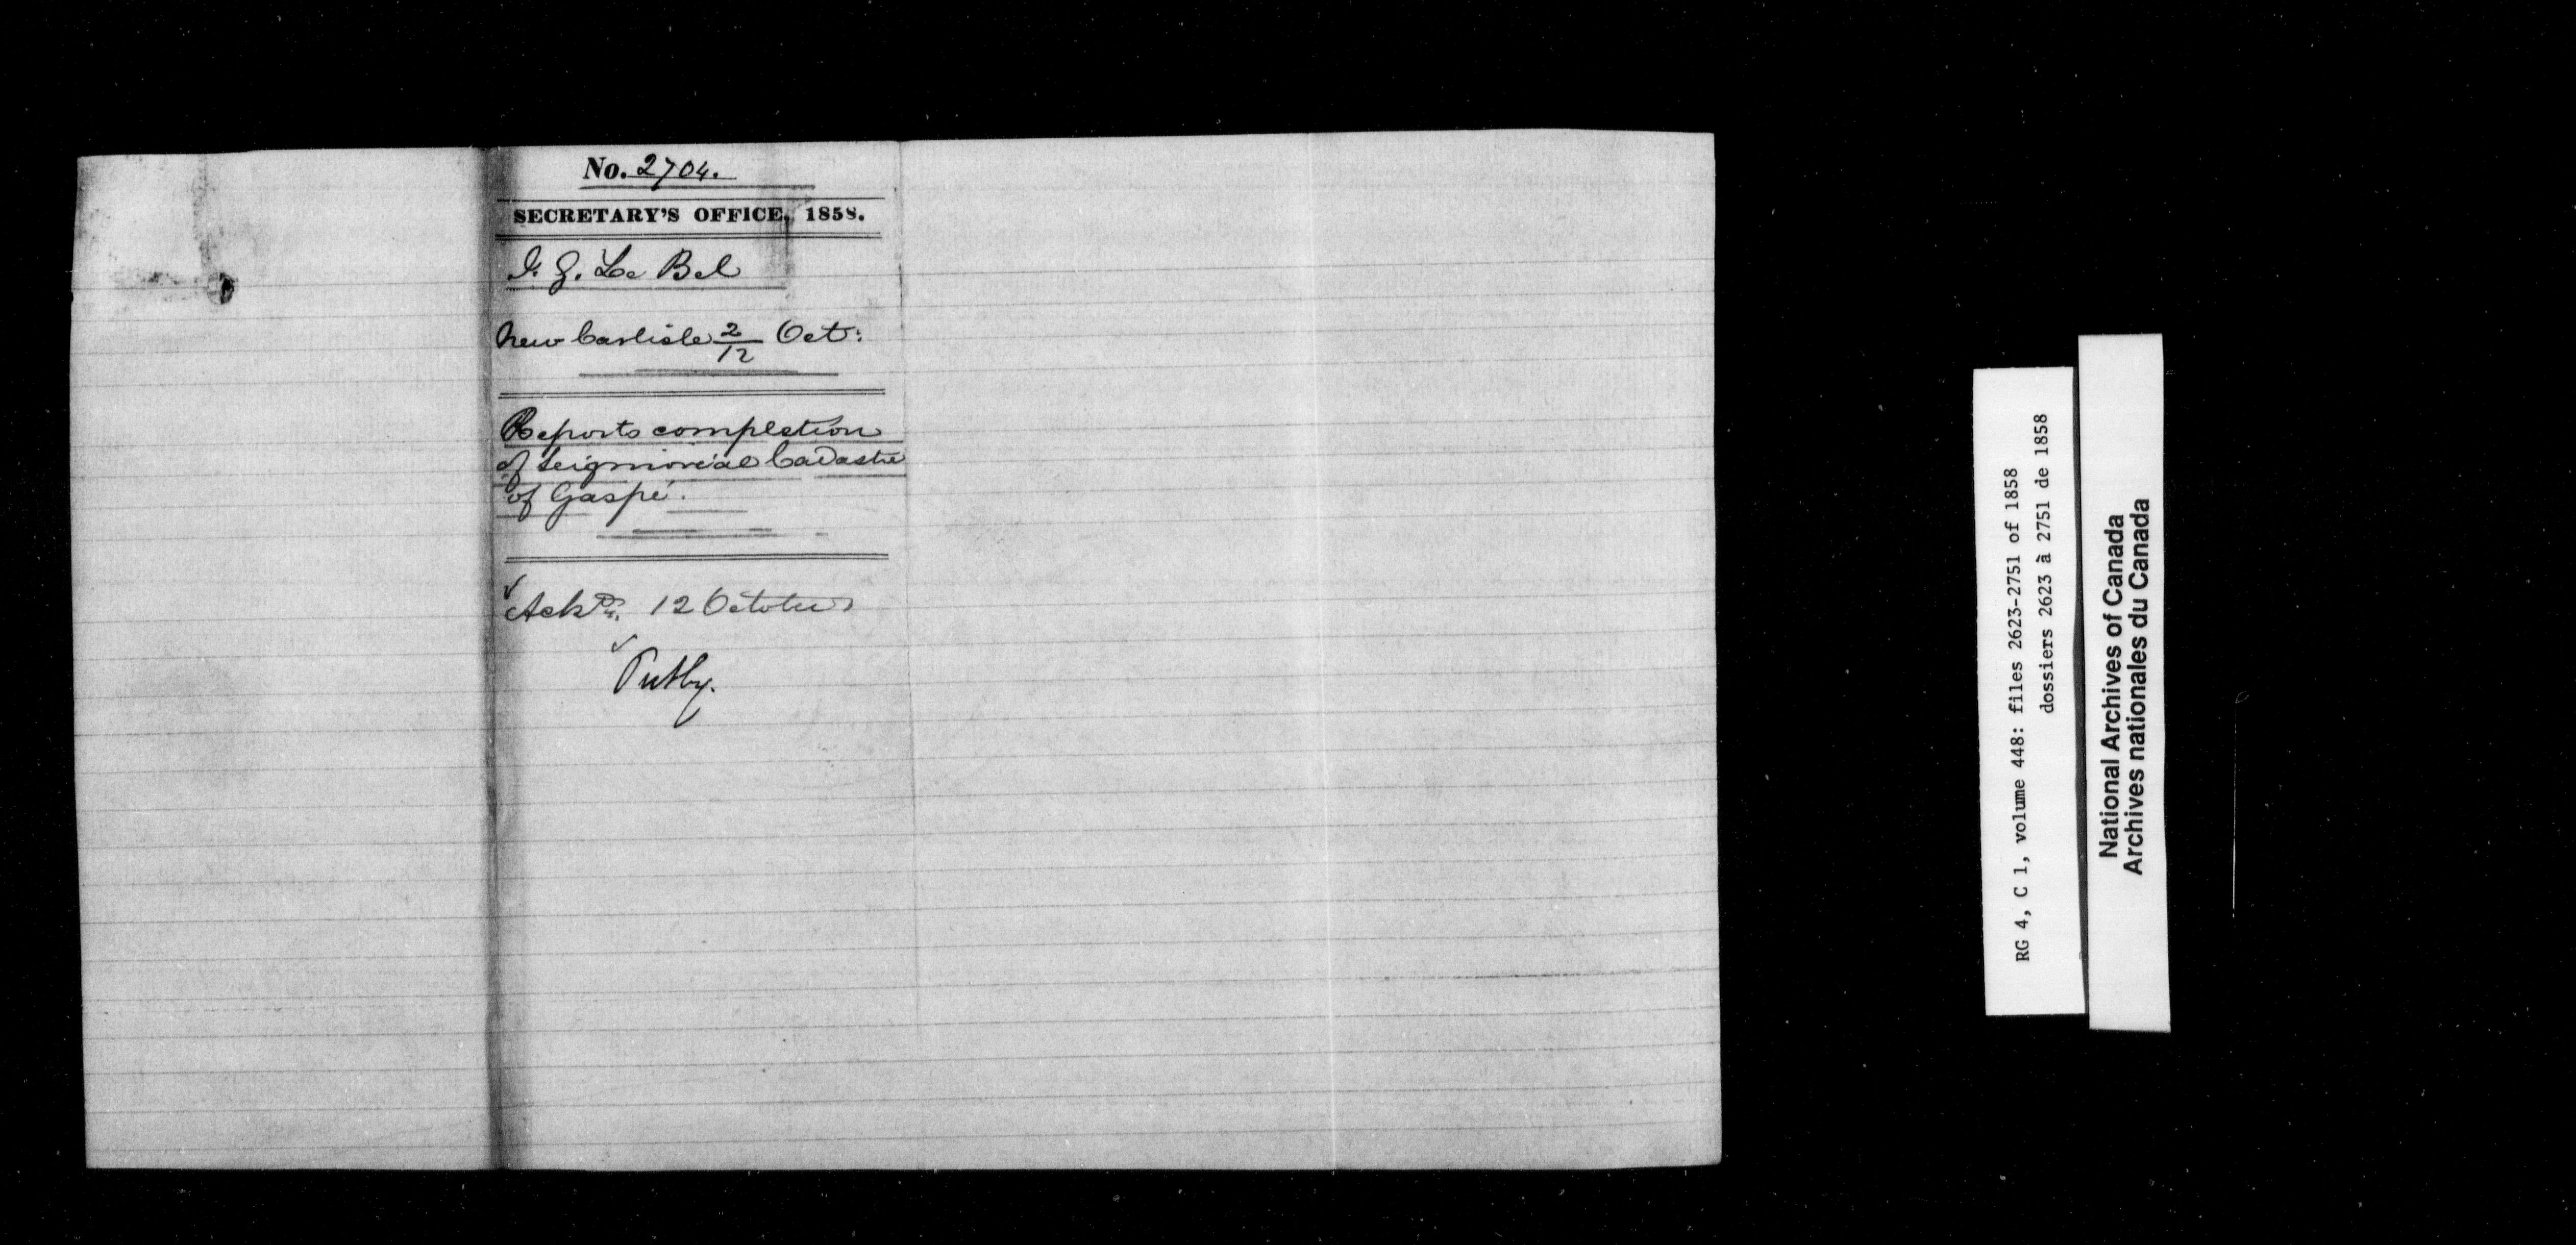 No. 2704.
SECRETARY'S OFFICE, 1858.
J. G. Le Bel
New Carlisle 2/12 Oct:
Reports completion
of Seigniorial Cadastre
of Gaspé.
Ackd. 12 October
RG 4, C 1, volume 448: files 2623-2751 of 1858
dossiers 2623 à 2751 de 1858
National Archives of Canada
Archives nationales du Canada